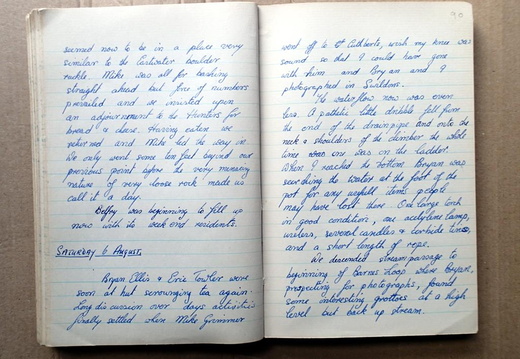 seemed now to be in a place very
similar to the Eastwater boulder
ruckle. Mike was all for bashing
straight ahead but force of numbers
prevailed and we insisted upon
an adjournment to the Hunters for
bread & cheese. Having eaten we
returned and Mike led the way in.
We only went some ten feet beyond our
previous point before the very menacing
nature of very loose rock made us
call it a day.
Belfry was beginning to fill up
now with its week end residents.
SATURDAY 6 AUGUST.
Bryan Ellis & Eric Towler were
soon at hut scrounging tea again.
Long discussion over days activities
finally settled when Mike Grimmer
90
went off to St Cuthberts, wish my knee was
sound so that I could have gone
with him and Bryan and I
photographed in Swildons.
The waterflow now was even
less. A pathetic little dribble fell from
the end of the drainpipe and onto the
neck & shoulders of the climber the whole
time one was on the ladder.
When I reached the bottom Bryan was
searching the water at the foot of the
pot for any useful items people
may have lost there. One large torch
in good condition, one acetylene lamp,
useless, several candles & carbide tins,
and a short length of rope.
We descended streampassage to
beginning of Barnes Loop where Bryan,
prospecting for photographs, found
some interesting grottoes at a high
level but back up stream.